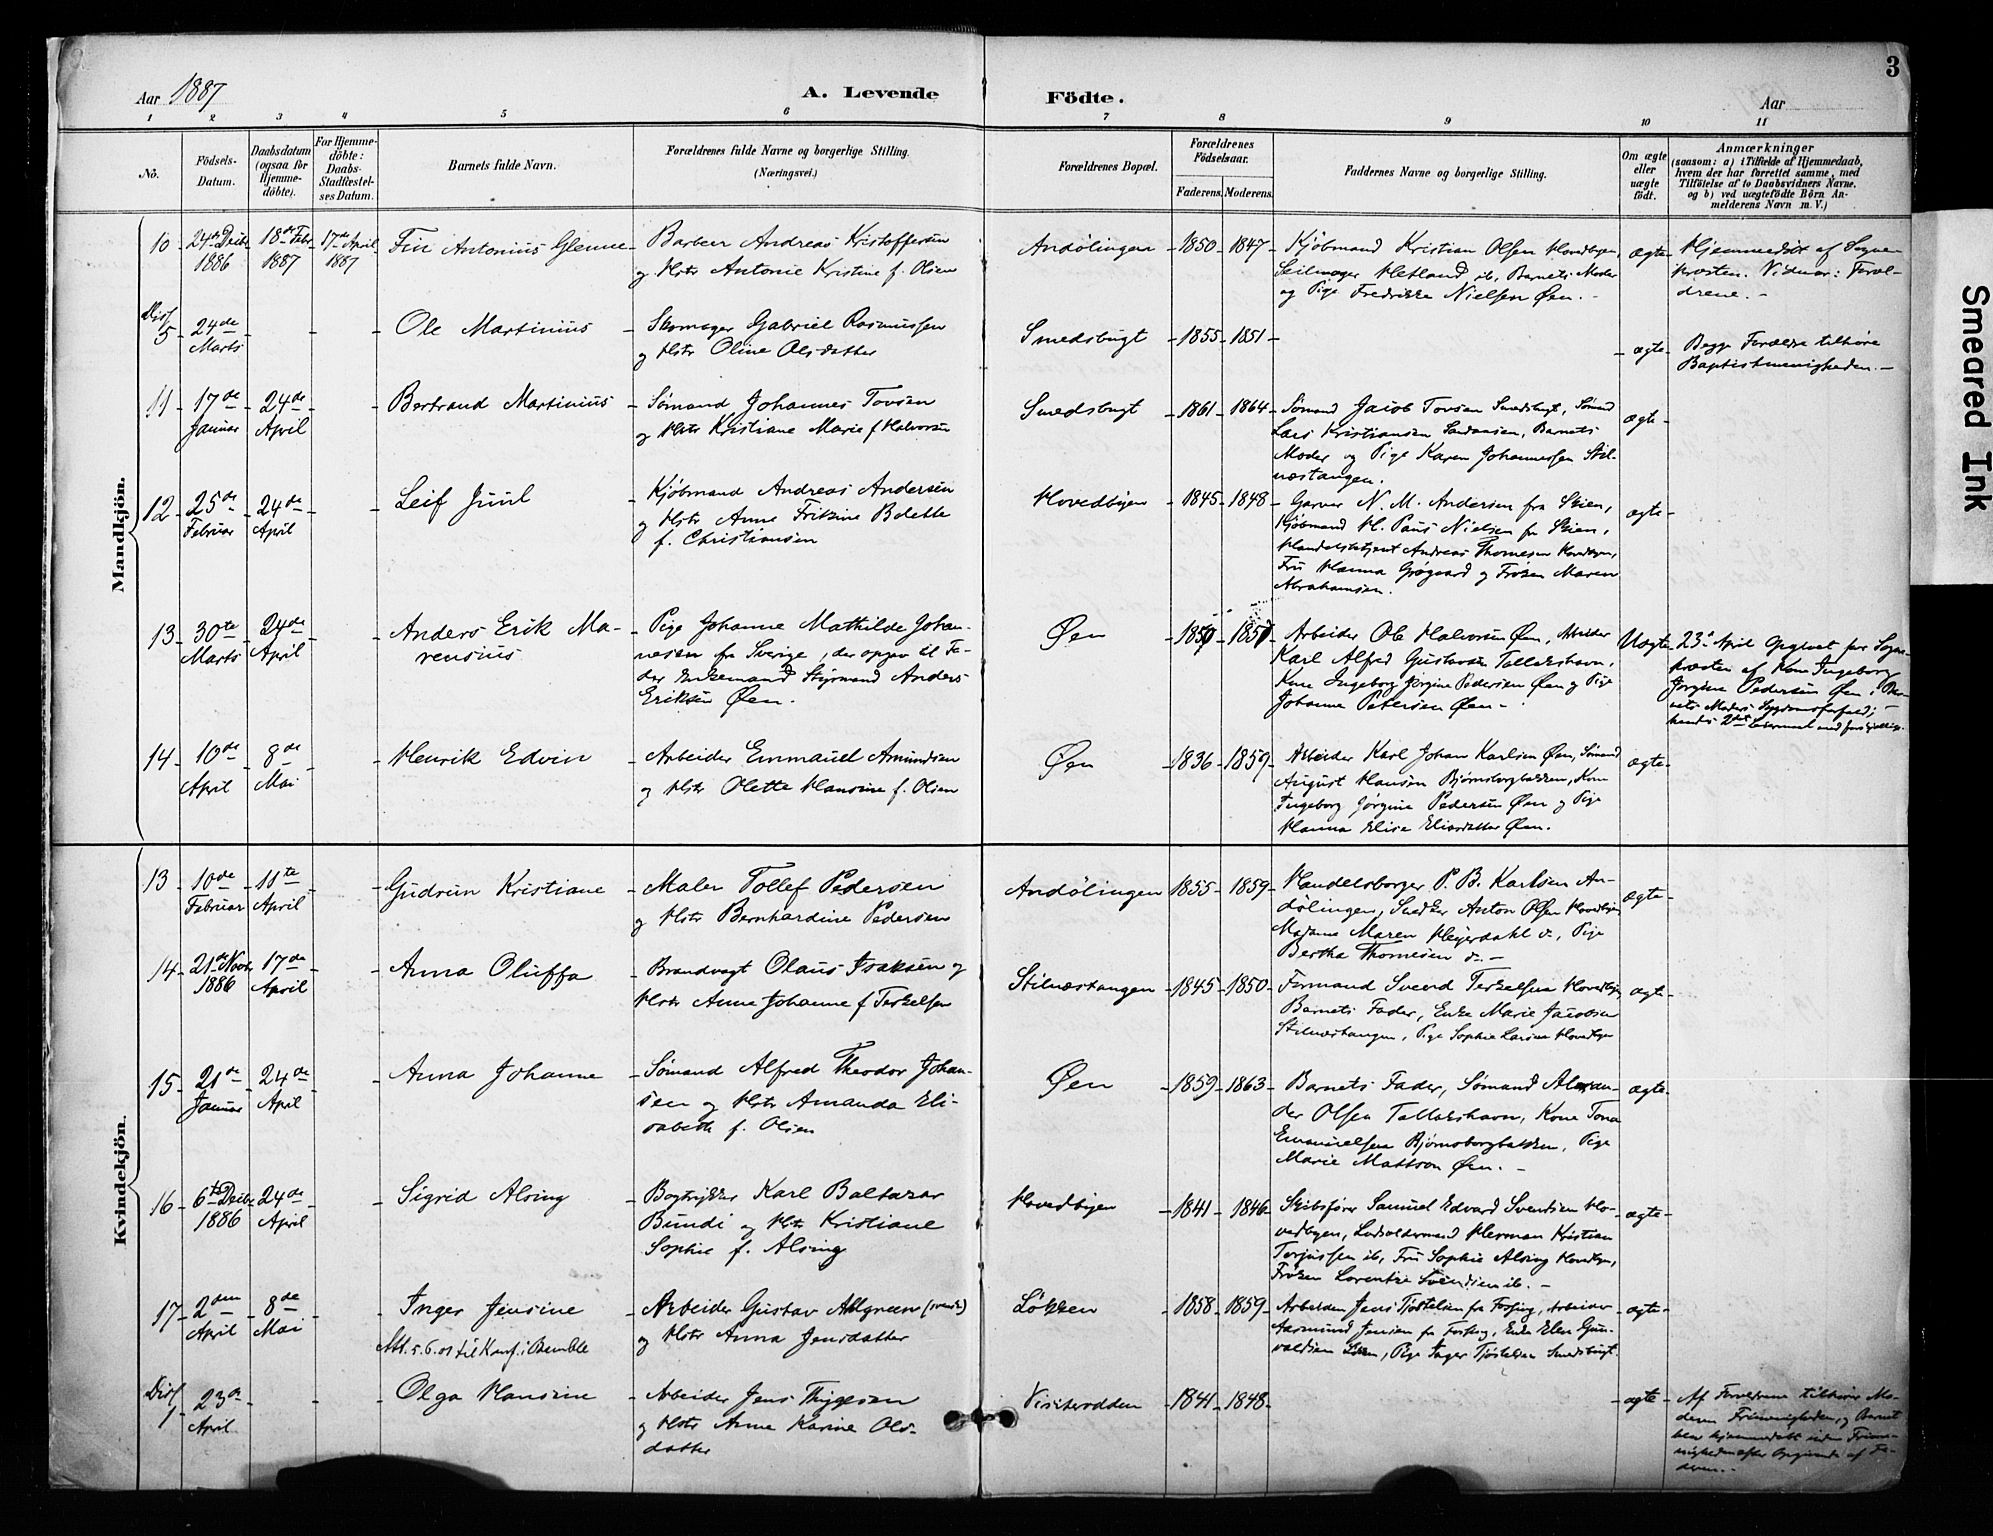 3
Aar 1887
A. Levende
Födte.
Aar
1 2 3 4 5 6 7 8 9 10 11
No.
Födsels-
Datum.
Daabsdatum
(ogsaa for
Hjemme-
döbte).
For Hjemme-
döbte:
Daabs-
Stadfæstel-
ses Datum.
Barnets fulde Navn.
Forældrenes fulde Navne og borgerlige Stilling.
(Næringsvei.)
Forældrenes Bopæl.
Forældrenes
Födselsaar.
Faderens. Moderens.
Faddernes Navne og borgerlige Stilling.
Om ægte
eller
uægte
födt.
Anmærkninger
(saasom: a) i Tilfælde af Hjemmedaab,
hvem der har forrettet samme, med
Tilföielse af to Daabsvidners Navne,
og b) ved uægtefödte Börn An-
melderens Navn m. V.)
Mandkjön.
10
24de Decbr
1886
18de Febr
1887
17de April
1887
Fin Antonius Glenne
Barber Andreas Kristoffersen
og Hstr Antonie Kristine f. Olsen
Andölingen
1850 1847
Kjöbmand Kristian Olsen Hovedbyen,
Seilmager Hetland ib, Barnets Moder
og Pige Fredrikke Nielsen Øen.
ægte
Hjemmedöbt af Sogne-
præsten. Vidner: Foræl-
drene.
Diss
5
24de
Marts
Ole Martinius
Skomager Gabriel Rasmussen
og Hstr Oline Olsdatter
Smedsbugt
1855 1851
ægte
Begge Forældre tilhøre
Baptistmenigheden.
11
17de
Januar
24de
April
Bertrand Martinius
Sömand Johannes Tovsen
og Hstr Kristiane Marie f. Halvorsen
Smedsbugt
1861 1864
Sömand Jacob Tovsen Smedsbugt, Sömand
Lars Kristiansen, Barnets
Moder og Pige Karen Johannessen Stil-
næstangen.
ægte
12
25de
Februar
24de
April
Leif Juul
Kjöbmand Andreas Andersen
og Hstr Anne Bolette
f. Christiansen
Hovedbyen
1845 1848
Garver N. M. Andersen fra Skien,
Kjöbmand H. Paus Nielsen fra Skien,
Handelsbetjent Andreas Thomesen Hovedbyen,
Fru Hanna Grögaard og Fröken Maren
Abrahamsen.
ægte
13
30te
Marts
24de
April
Anders Erik Ma-
rensius
Pige Johanne Mathilde Johan-
nesen fra Sverige, der opgav til Fa-
der Enkemand Styrmand Anders
Eriksen Øen.
Øen
Arbeider Ole Halvorsen Øen, Arbeider
Karl Alfred Gustavsen Tallakshavn,
Kone Ingeborg Jörgine Pedersen Øen og Pige
Johanne Petersen Øen
Uægte
23de April Opgivet for Sogne-
præsten af Kone Ingeborg
Jörgine Pedersen Øen.
14
10de
April
8de
Mai
Henrik Edvin
Arbeider Emmanuel Amundsen
og Hstr Olette Hansine f. Olsen
Øen
1836 1859
Arbeider Karl Johan Karlsen Øen, Sömand
August Hansen Bjørnsborgbakken, Kone
Ingeborg Jörgine Pedersen Øen og Pige
Hanna Elise Eliasdatter Øen.
ægte
Kvindekjön.
13
10de
Februar
11te
April
Gudrun Kristiane
Maler Tollef Pedersen
og Hstr Bernhardine Pedersen
Andölingen
1855 1859
Handelsborger P. B. Karlsen An-
dölingen, Snedker Anton Olsen Hovedbyen,
Madame Maren Heyerdahl do, Pige
Bertha Thomesen do.
ægte
14
21de Novbr
1886
17de
April
Anna Oluffa
Brandvagt Olaus Isaksen og
Hstr Anne Johanne f. Terkelsen
Stilnæstangen
1845 1850
Formand Svend Terkelsen Hovedbyen
Barnets Fader, Enke Marie Jacobsen
Stilnæstangen, Pige Sophie Larsen Hovedbyen
ægte
15
21de
Januar
24de
April
Anna Johanne
Sömand Alfred Theodor Johan-
sen og Hstr Amanda Eli-
sabeth f. Olsen
Øen
1859 1863
Barnets Fader, Sömand Alexan-
der Olsen Tallakshavn, Kone Tona
Emanuelsen Bjørnsborgbakken, Pige
Marie Mattson Øen.
ægte
16
6te Decbr
1886
24de
April
Sigrid Alsing
Bogtrykker Karl Baltazar
Bundi og Hstr Kristiane
Sophie f. Alsing
Hovedbyen
1841 1846
Skibsförer Samuel Edvard Svendsen Ho-
vedbyen, Lodsoldermand Herman Kristian
Terjussen ib, Fru Sophie Alsing Hovedbyen,
Fröken Lorentze Svendsen ib.
ægte
17
2den
April
8de
Mai
Inger Jensine
Att. 5.6.01 til Konf. i Bamble
Arbeider Gustav Allgreen (svensk)
og Hstr Anna Jensdatter
Løkken
1858 1859
Arbeider Jens Tjøstelsen fra, Arbeider
Aasmund Jensen fra, Enke Elen Gun-
valdsen, Pige Inger Tjøstelsen Smedsbugt.
ægte
Diss
1
23de
April
Olga Hansine
Arbeider Jens Thygesen
og Hstr Anne Karine Ols-
datter
Visiterodden
1841 1848
ægte
Af Forældrene tilhører Mo-
deren Frimenigheden, og Barnet
blev hjemmedöbt inden Frime-
nigheden efter Opgivende af Fa-
deren.
Smeared Ink